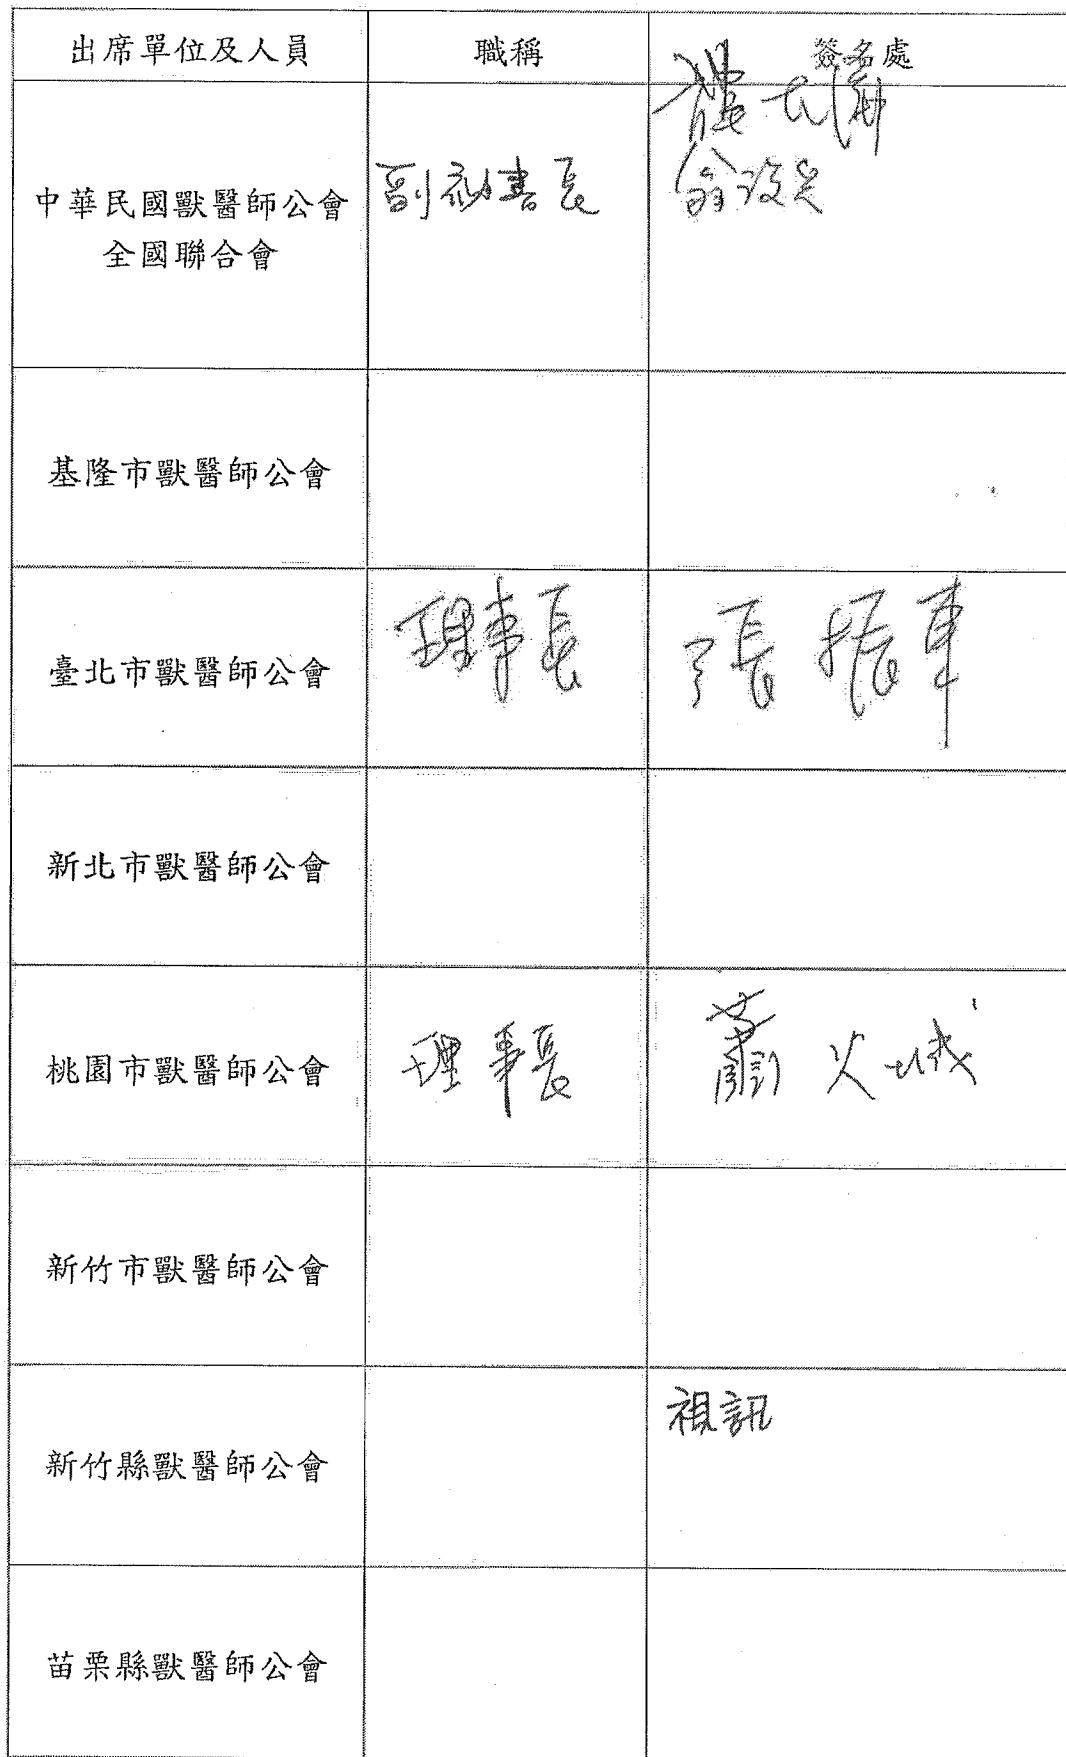 出席單位及人員 職稱 簽名處
中華民國獸醫師公會
全國聯合會
副秘書長
基隆市獸醫師公會
臺北市獸醫師公會 理事長 張振軍
新北市獸醫師公會
桃園市獸醫師公會 理事長 蕭火城
新竹市獸醫師公會
新竹縣獸醫師公會 視訊
苗栗縣獸醫師公會